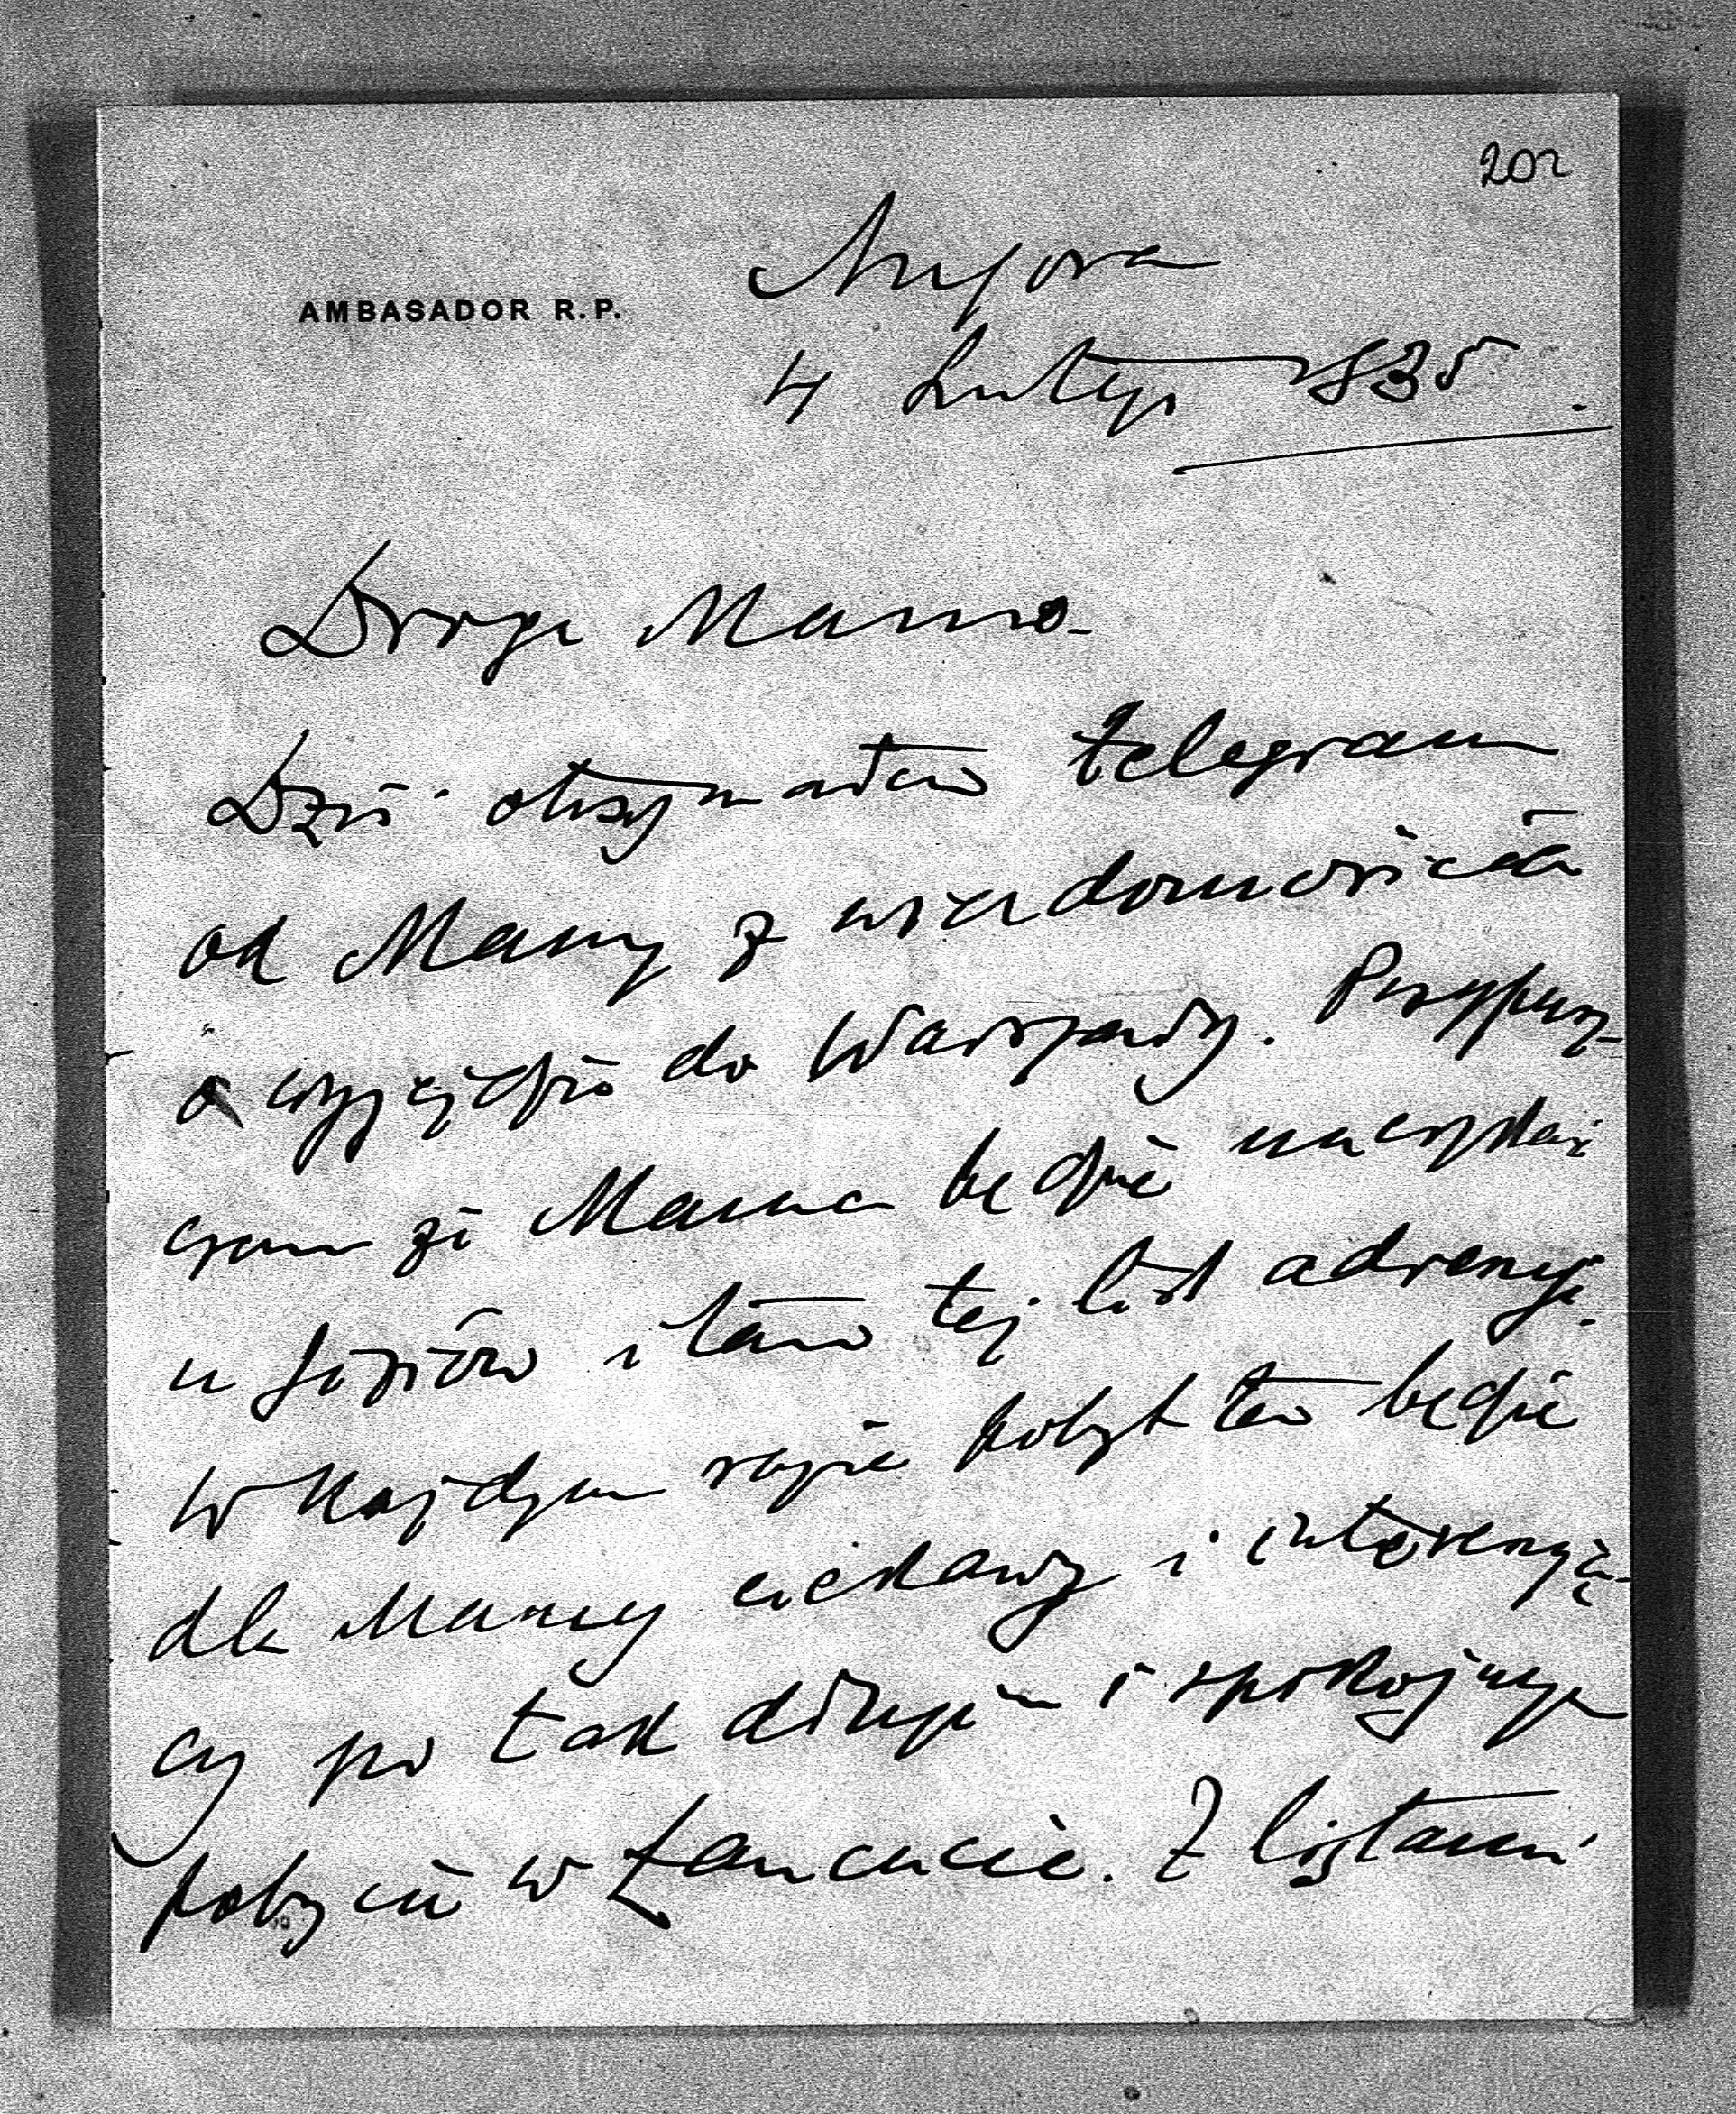 202
AMBASADOR R.P.
Angora
4 Lutego 935
Droga Mamo.
Dziś otrzymałem telegram
od Mamy z wiadomością
o wyjeździe do Warszawy. Przypusz-
czam że Mama będzie mieszkać
u Józiów i tam tej list adresuję.
W każdym razie pobyt ten będzie
dla Mamy ciekawy i interesują-
cy po tak długim i spokojnym
pobycie w Łańcucie. Z listami